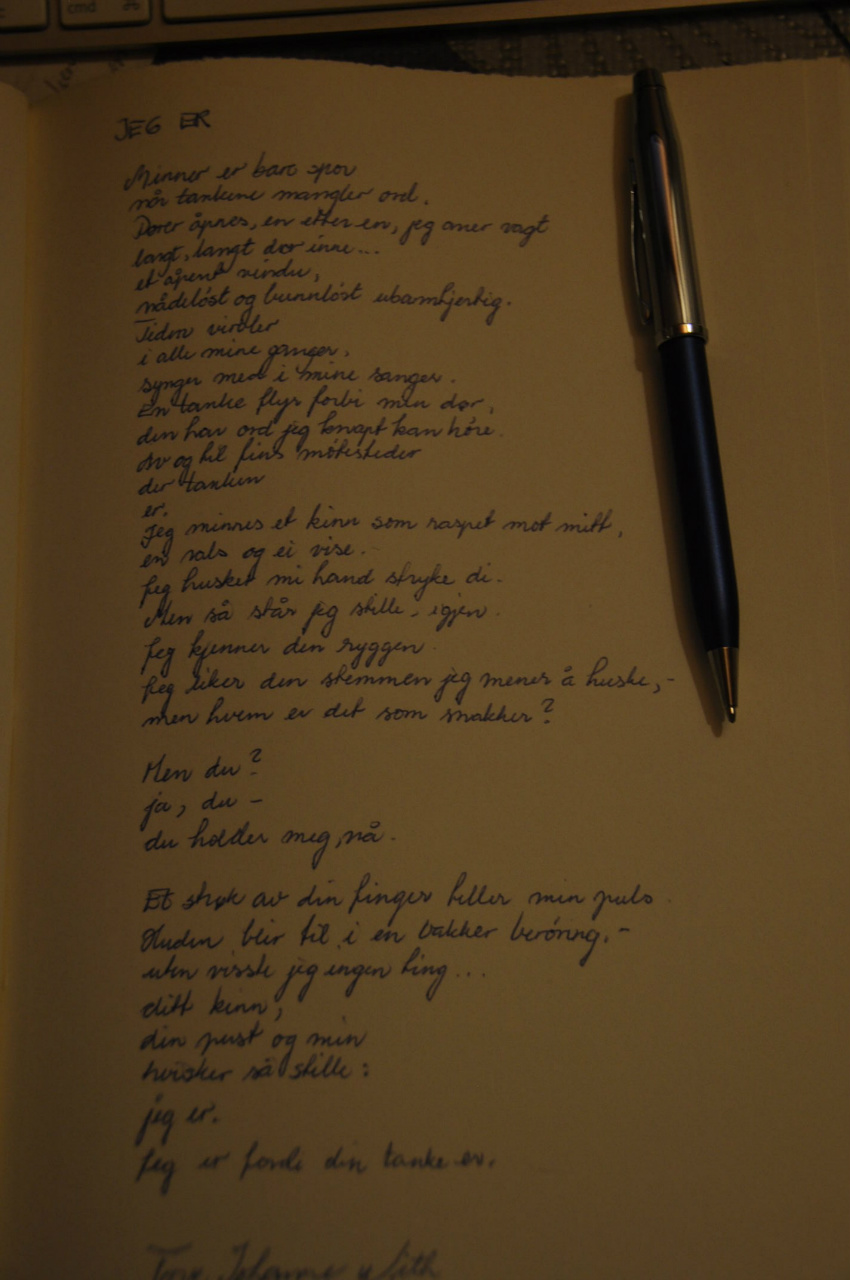 cmd ⌘
JEG ER
Minner er bare spor
når tankene mangler ord.
Dører åpnes, en etter en, jeg aner vagt
langt, langt der inne...
et åpent vindu,
nådeløst og bunnløst ubarmhjertig.
Tiden virvler
i alle mine ganger,
synger med i mine sanger.
En tanke flyr forbi min dør,
den har ord jeg knapt kan høre.
Av og til fins møtesteder
der tanken
er.
Jeg minnes et kinn som raspet mot mitt,
en vals og ei vise.
Jeg husker mi hand stryke di.
Men så står jeg stille, igjen.
Jeg kjenner den ryggen.
Jeg liker den stemmen jeg mener å huske,-
men hvem er det som snakker?
Men du?
ja, du -
du holder meg, nå.
Et strøk av din finger teller min puls.
Huden blir til i en vakker berøring,-
uten visste jeg ingen ting...
ditt kinn,
din pust og min
hvisker så stille:
jeg er.
Jeg er fordi din tanke er.
With